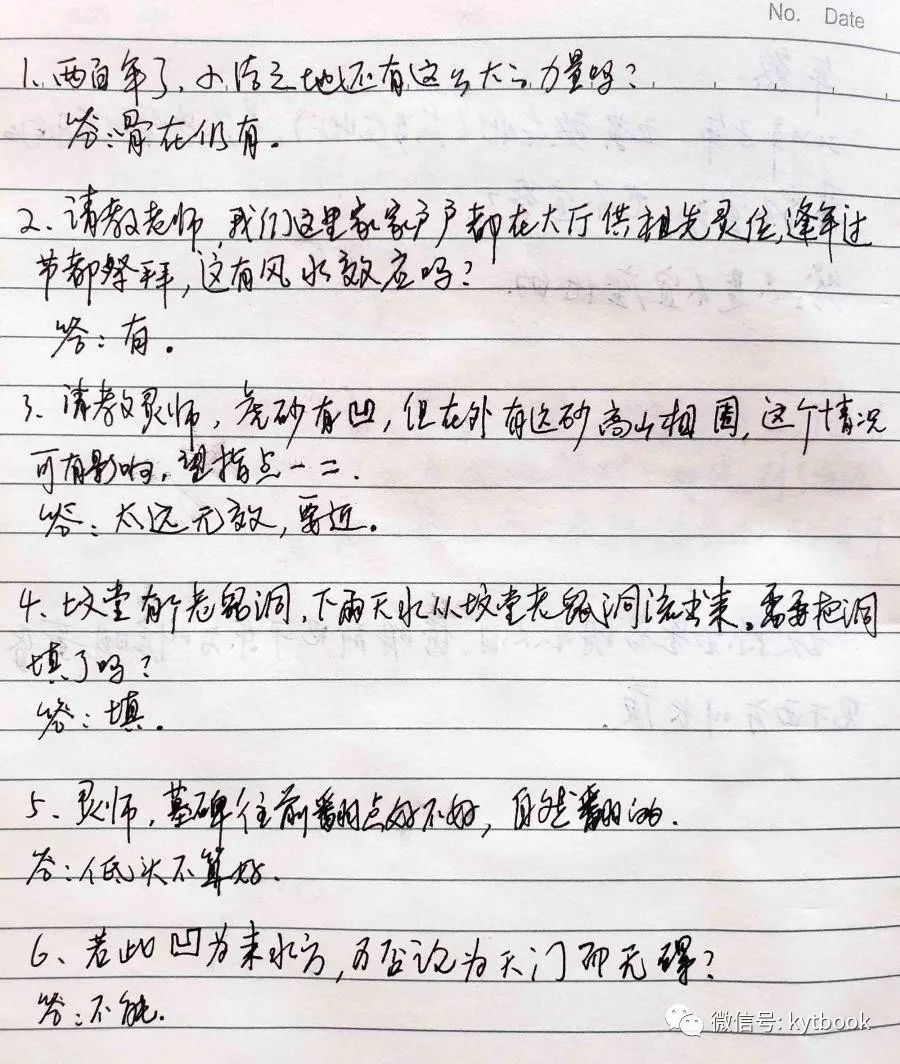 No. Date
1、两百年了,小结之地还有这么大的力量吗?
答:骨在仍有。
2、请教老师,我们这里家家户户都在大厅供祖先灵位,逢年过
节都祭拜,这有风水效应吗?
答:有。
3、请教灵师,虎砂有凹,但在外有远砂高山相围,这个情况
可有影响,望指点一二.
答:太远无效,要近。
4、坟堂有个老鼠洞,下雨天水从坟堂老鼠洞流出来。需要把洞
填了吗?
答:填。
5、灵师,墓碑往前翻点好不好,自然翻的.
答:低头不算好.
6、若此凹为来水方,可否认为天门而无碍?
答:不能.
微信号: kytbook